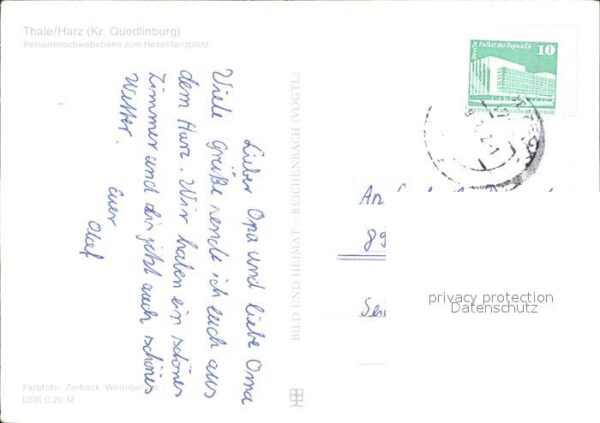 Thale/Harz (Kr. Quedlinburg)
Personenschwebebahn zum Hexentanzplatz
Lieber Opa und liebe Oma
Viele Grüße sende ich euch aus
dem Harz. Wir haben ein schönes
Zimmer und bis jetzt auch schönes
Wetter.
Euer
Olaf
Farbfoto: Zerback, Wernigerode
DDR 0,20 M
BILD UND HEIMAT · REICHENBACH (VOGTL)
Berlin Palast der Republik
10
An
89
privacy protection
Datenschutz